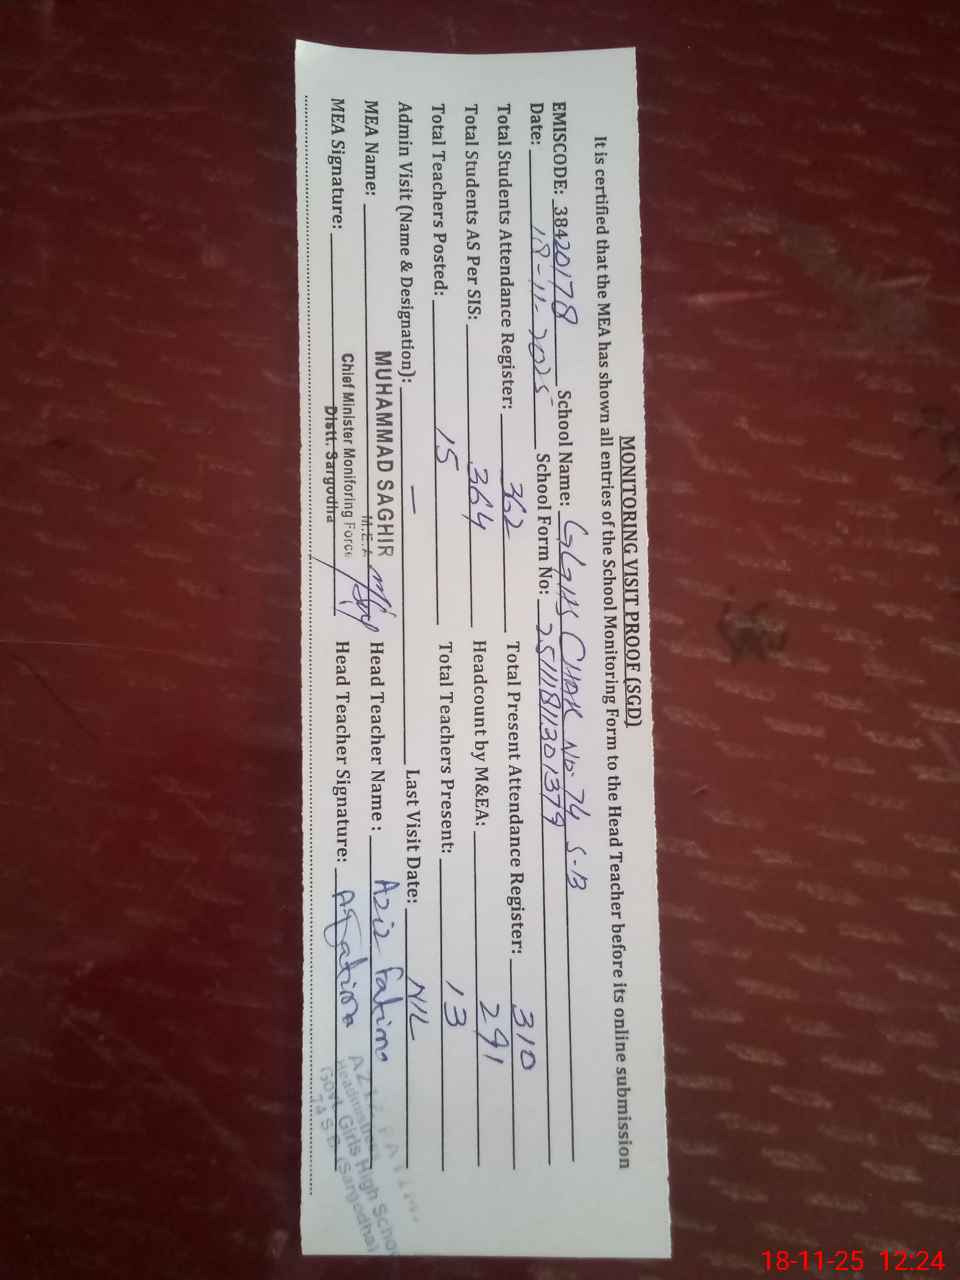 MONITORING VISIT PROOF (SGD)
It is certified that the MEA has shown all entries of the School Monitoring Form to the Head Teacher before its online submission
EMISCODE: 38420178 School Name: GGHS CHAK No. 74 S.B
Date: 18-11-2025 School Form No: 25111811301379
Total Students Attendance Register: 362 Total Present Attendance Register: 310
Total Students AS Per SIS: 364 Headcount by M&EA: 291
Total Teachers Posted: 15 Total Teachers Present: 13
Admin Visit (Name & Designation): — Last Visit Date: NIL
MEA Name: MUHAMMAD SAGHIR Head Teacher Name : Aziz Fatima
M.E.A
MEA Signature: Chief Minister Monitoring Force Head Teacher Signature: AFatima
Distt. Sargodha
Headmistress
Govt. Girls High School
74 S.B. (Sargodha)
18-11-25 12:24